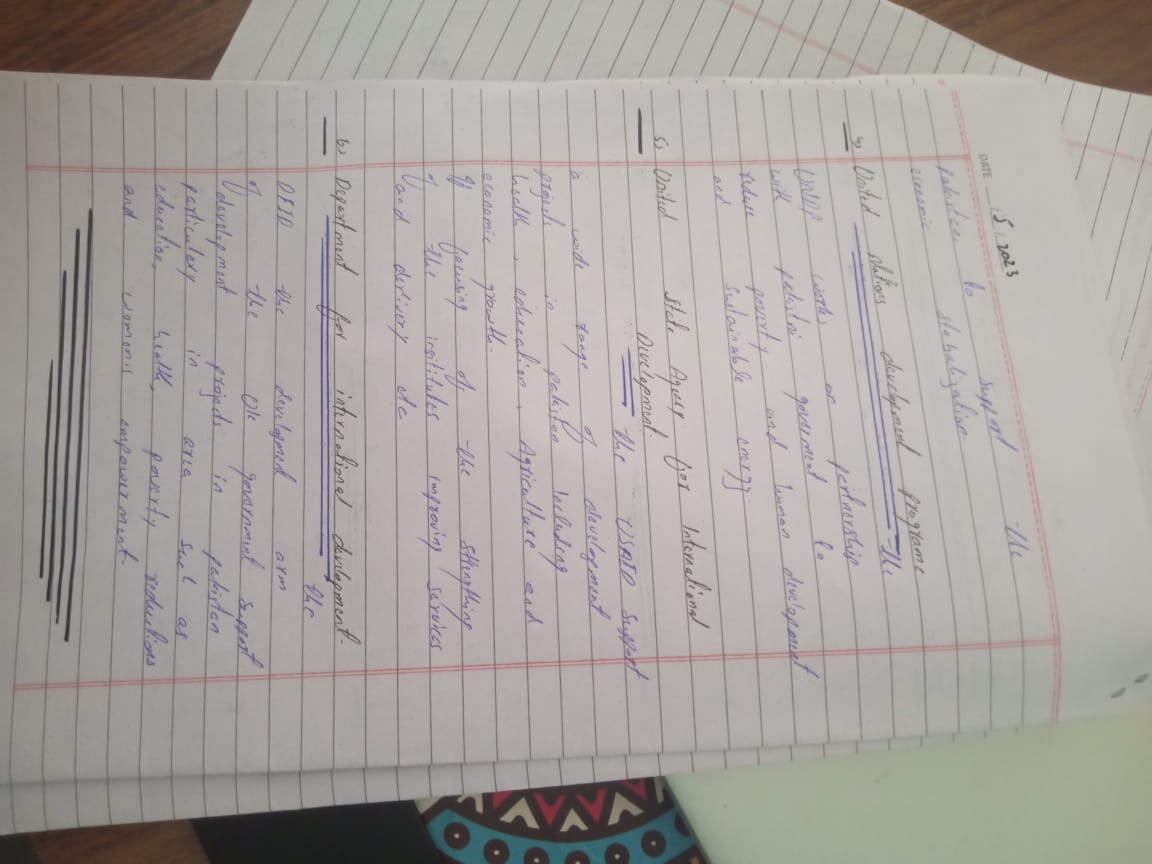 DATE / 5 / 2023
pakistan to support the
economic stabalization.
4) United Nations development programe
the
UNDP works on pertnership
with pakistni goverment to
reduce poverty and human development
and sustainable energy.
5) United State Agency for International
Development.
the USAID support
a wide range of development
projects in pakistan Including
health, education, Agriculture and
economic growth.
focusing of the
of the institutes improving services
and derlivery etc
6) Department for international development.
the
DFID the development arm
of the Uk government support
development projects in pakistan
particulary in area such as
education, health, poverty reductions
and women's empowerment.